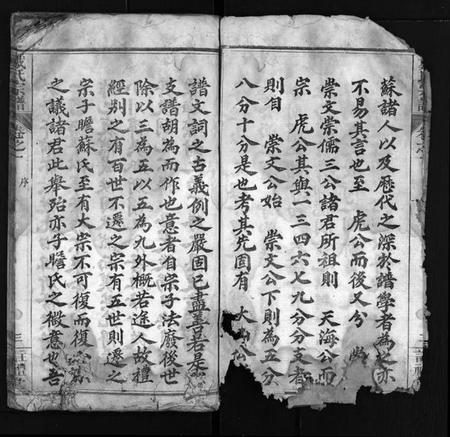 蘇諸人以及歷代之深於譜學者為之亦
不易其言也至　虎公而後又分
崇文崇儒三公諸君所祖則　天海公而
宗　虎公其與一三四六七九分分支都
則自　崇文公始　崇文公下則為五分
八分十分是也考其先固有
譜文詞之古義例之嚴固已盡善若是
支譜胡為而作也意者自宗子法廢後世
除以三為五以五為九外概若途人故禮
經別之有百世不遷之宗有五世則遷之
宗子瞻蘇氏至有大宗不可復而復小宗
之議諸君此舉殆亦子瞻氏之微意也吾
氏宗譜
卷之一
序
三